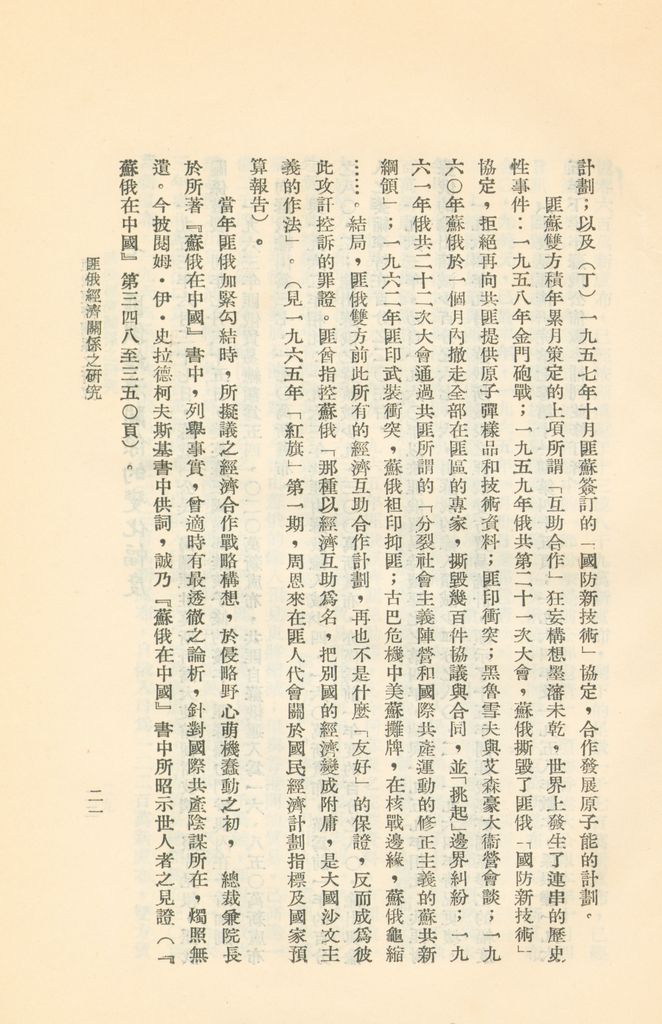 計劃；以及（丁）一九五七年十月匪蘇簽訂的「國防新技術」協定，合作發展原子能的計劃。
匪蘇雙方積年累月策定的上項所謂「互助合作」狂妄構想墨瀋未乾，世界上發生了連串的歷史
性事件：一九五八年金門砲戰；一九五九年俄共第二十一次大會，蘇俄撕毀了匪俄「國防新技術」
協定，拒絕再向共匪提供原子彈樣品和技術資料；匪印衝突；黑魯雪夫與艾森豪大衞營會談；一九
六〇年蘇俄於一個月內撤走全部在匪區的專家，撕毀幾百件協議與合同，並「挑起」邊界糾紛；一九
六一年俄共二十二次大會通過共匪所謂的「分裂社會主義陣營和國際共產運動的修正主義的蘇共新
綱領」；一九六二年匪印武裝衝突，蘇俄袒印抑匪；古巴危機中美蘇攤牌，在核戰邊緣，蘇俄龜縮
……。結局，匪俄雙方前此所有的經濟互助合作計劃，再也不是什麼「友好」的保證，反而成爲彼
此攻訐控訴的罪證。匪酋指控蘇俄「那種以經濟互助爲名，把別國的經濟變成附庸，是大國沙文主
義的作法」。（見一九六五年「紅旗」第一期，周恩來在匪人代會關於國民經濟計劃指標及國家預
算報告）。
當年匪俄加緊勾結時，所擬議之經濟合作戰略構想，於侵略野心萌機蠢動之初，　總裁兼院長
於所著『蘇俄在中國』書中，列舉事實，曾適時有最透徹之論析，針對國際共產陰謀所在，燭照無
遺。今披閱姆・伊・史拉德柯夫斯基書中供詞，誠乃『蘇俄在中國』書中所昭示世人者之見證（『
蘇俄在中國』第三四八至三五〇頁）。
匪俄經濟關係之研究
二一